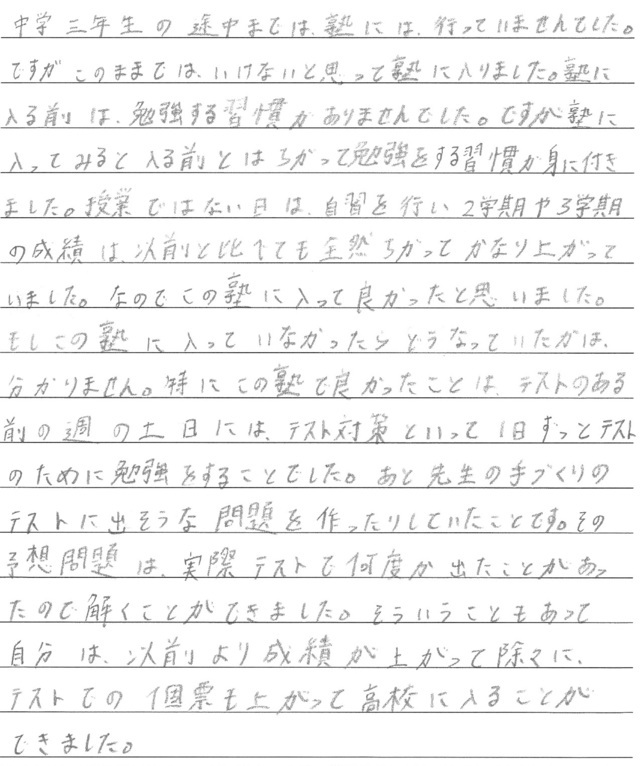 中学三年生の途中までは、塾には、行っていませんでした。
ですがこのままでは、いけないと思って塾に入りました。塾に
入る前は、勉強する習慣がありませんでした。ですが塾に
入ってみると入る前とはちがって勉強をする習慣が身に付き
ました。授業ではない日は、自習を行い2学期や3学期
の成績は、以前と比べても全然ちがってかなり上がって
いました。なのでこの塾に入って良かったと思いました。
もしこの塾に入っていなかったらどうなっていたかは、
分かりません。特にこの塾で良かったことは、テストのある
前の週の土日には、テスト対策といって1日ずっとテスト
のために勉強をすることでした。あと先生の手づくりの
テストに出そうな問題を作ったりしていたことです。その
予想問題は、実際テストで何度か出たことがあっ
たので解くことができました。そういうこともあって
自分は、以前より成績が上がって除々に、
テストでの個票も上がって高校に入ることが
できました。